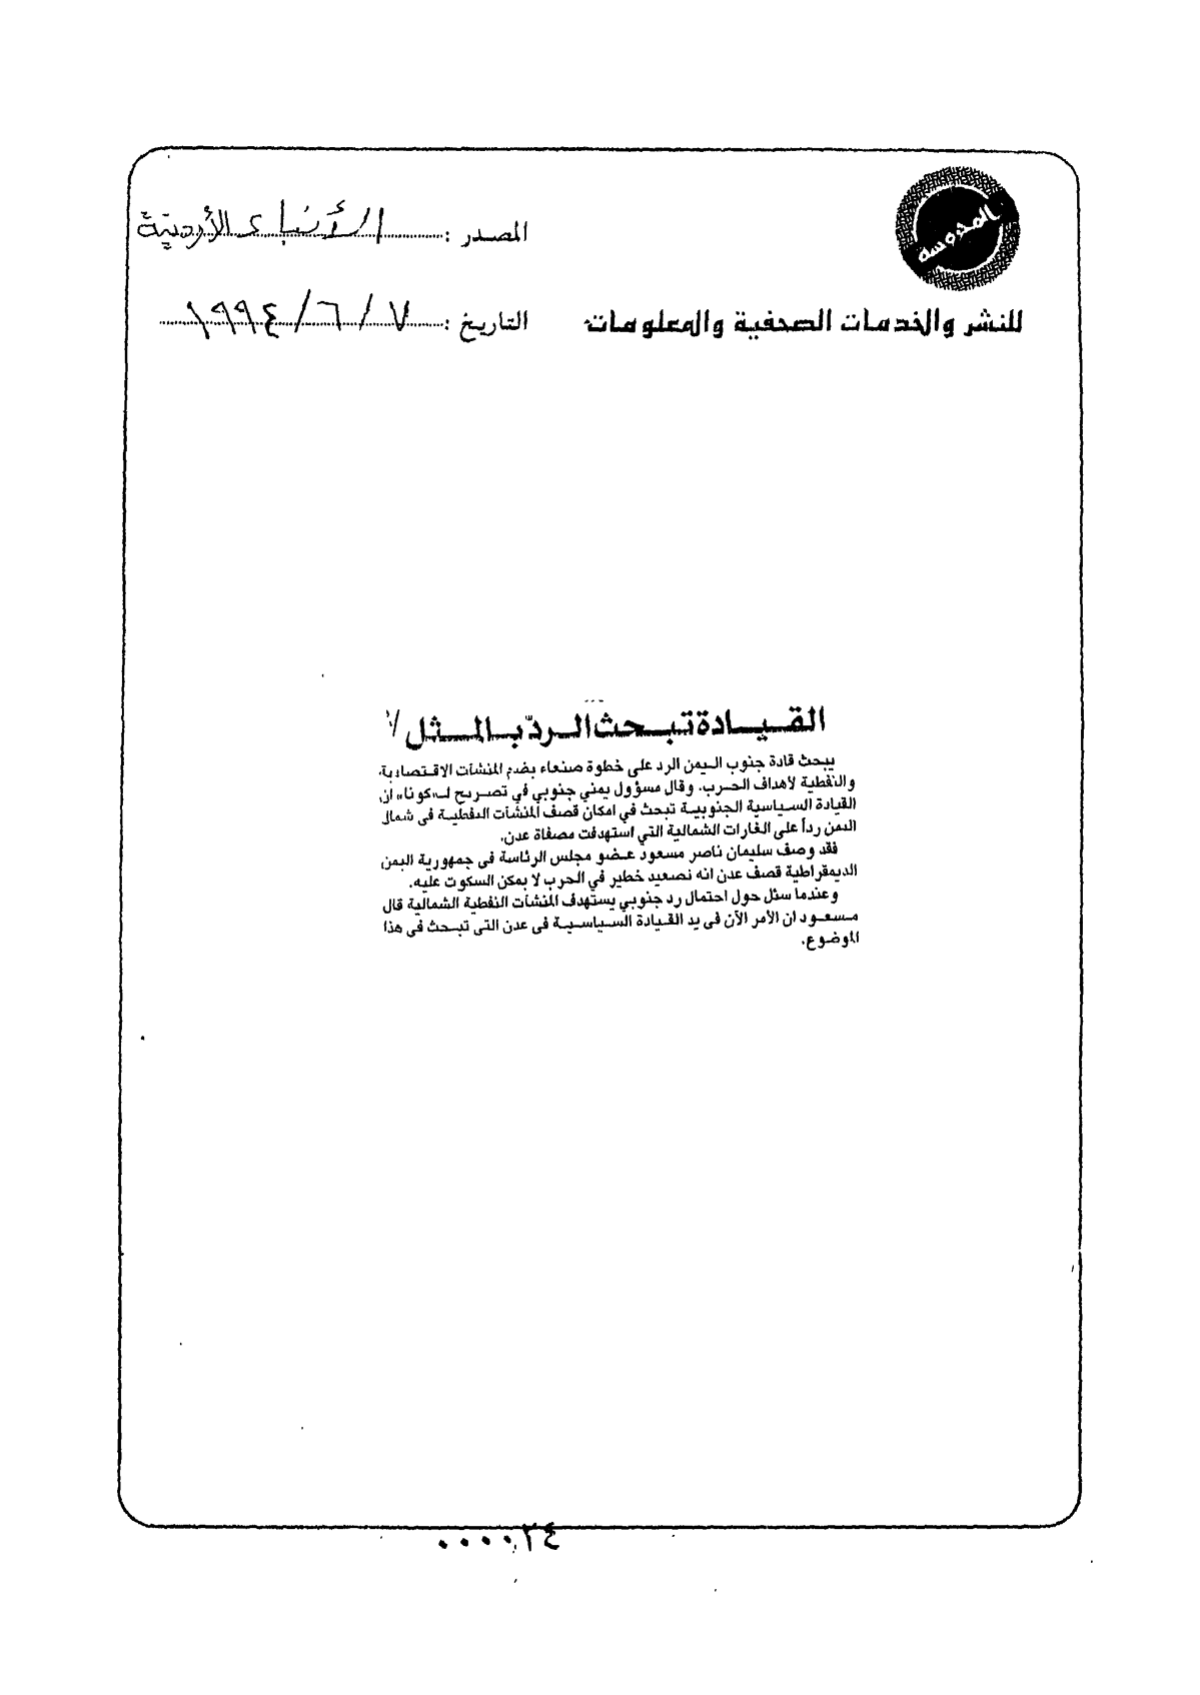 المحروسة
المصدر : الأنباء الأردنية
للنشر والخدمات الصحفية والمعلومات
التاريخ : ٧ / ٦ / ١٩٩٤
القيادة تبحث الردّ بالمثل
يبحث قادة جنوب اليمن الرد على خطوة صنعاء بضم المنشآت الاقتصادية
والنفطية لأهداف الحرب. وقال مسؤول يمني جنوبي في تصريح لـ«كونا» ان
القيادة السياسية الجنوبية تبحث في امكان قصف المنشآت النفطية في شمال
اليمن رداً على الغارات الشمالية التي استهدفت مصفاة عدن.
فقد وصف سليمان ناصر مسعود عضو مجلس الرئاسة في جمهورية اليمن
الديمقراطية قصف عدن انه تصعيد خطير في الحرب لا يمكن السكوت عليه.
وعندما سئل حول احتمال رد جنوبي يستهدف المنشآت النفطية الشمالية قال
مسعود ان الأمر الآن في يد القيادة السياسية في عدن التي تبحث في هذا
الموضوع.
٠٠٠٠٢٤